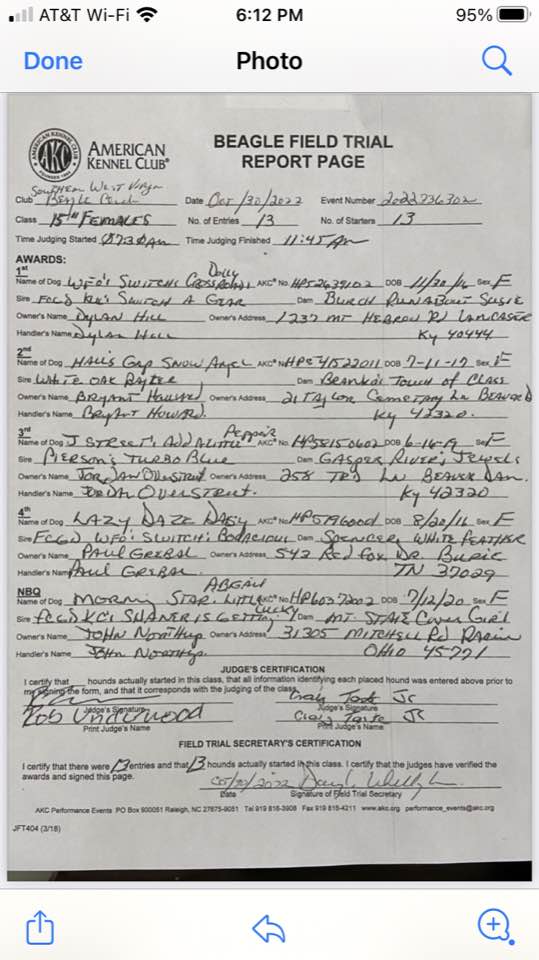 AT&T Wi-Fi 6:12 PM 95%
Done Photo
AMERICAN KENNEL CLUB AKC FOUNDED 1884
AMERICAN
KENNEL CLUB®
BEAGLE FIELD TRIAL
REPORT PAGE
Southern West Virgin
Club Beagle Club Date Oct/30/2022 Event Number 2022736302
Class 15" FEMALES No. of Entries 13 No. of Starters 13
Time Judging Started 0730Am Time Judging Finished 11:45 Am
AWARDS:
1st Dolly
Name of Dog WFO'S SWITCHS CROSSROADS AKC® No. HP52639102 DOB 11/20/14 Sex F
Sire FCGD KK'S SWITCH A GEAR Dam BURCH RUNABOUT SUSIE
Owner's Name Dylan Hill Owner's Address 1237 MT HEBRON RD LANCASER
Handler's Name Dylan Hill Ky 40444
2nd
Name of Dog HALL'S Gap SNOW ANgel AKC® No. DOB 7-11-17 Sex F
Sire WHITE OAK Dam Touch of CLASS
Owner's Name BRYANT HOWARD Owner's Address 21 TAYLOR CEMETARY LN BEAVER D
Handler's Name BRYANT HOWARD. Ky 42320.
3rd Pepper
Name of Dog J STREET'S ADD A LITTLE AKC® No. HP58150602 DOB 6-16-19 Sex F
Sire PIERSON'S TURBO BLUE Dam GASPER RIVER'S JEWELS
Owner's Name JORDAN OVERSTREET Owner's Address 258 LN BEAVER DAM.
Handler's Name JORDAN OVERSTREET. Ky 42320
4th
Name of Dog LAZY DAZE DAISY AKC® No. DOB 8/20/16 Sex F
Sire FCGD WFO'S SWITCH'S BODACIOUS Dam SPENCERS WHITE FEATHER
Owner's Name PAUL GREBAL Owner's Address 542 Red fox DR. BURIC
Handler's Name PAUL GREBAL. TN 37029
NBQ ABGAIL
Name of Dog MORNING STAR. LITTLE AKC® No. HP60372002 DOB 7/12/20 Sex F
Sire FCGD KC'S SHANER IS GETTIN LUCKY Dam MT. STATE COVER GIRL
Owner's Name JOHN NORTHUP Owner's Address 31305 MITCHELL RD RACIN
Handler's Name JOHN NORTHUP. OHIO 45771
JUDGE'S CERTIFICATION
I certify that hounds actually started in this class, that all information identifying each placed hound was entered above prior to
my signing the form, and that it corresponds with the judging of the class.
Judge's Signature Judge's Signature Jr
Rob Underwood Craig Jr
Print Judge's Name Print Judge's Name
FIELD TRIAL SECRETARY'S CERTIFICATION
I certify that there were 13 entries and that 13 hounds actually started in this class. I certify that the judges have verified the
awards and signed this page.
Date Signature of Field Trial Secretary
AKC Performance Events PO Box 900051 Raleigh, NC 27675-9051 Tel 919 816-3908 Fax 919 815-4211 www.akc.org performance_events@akc.org
JFT404 (3/18)